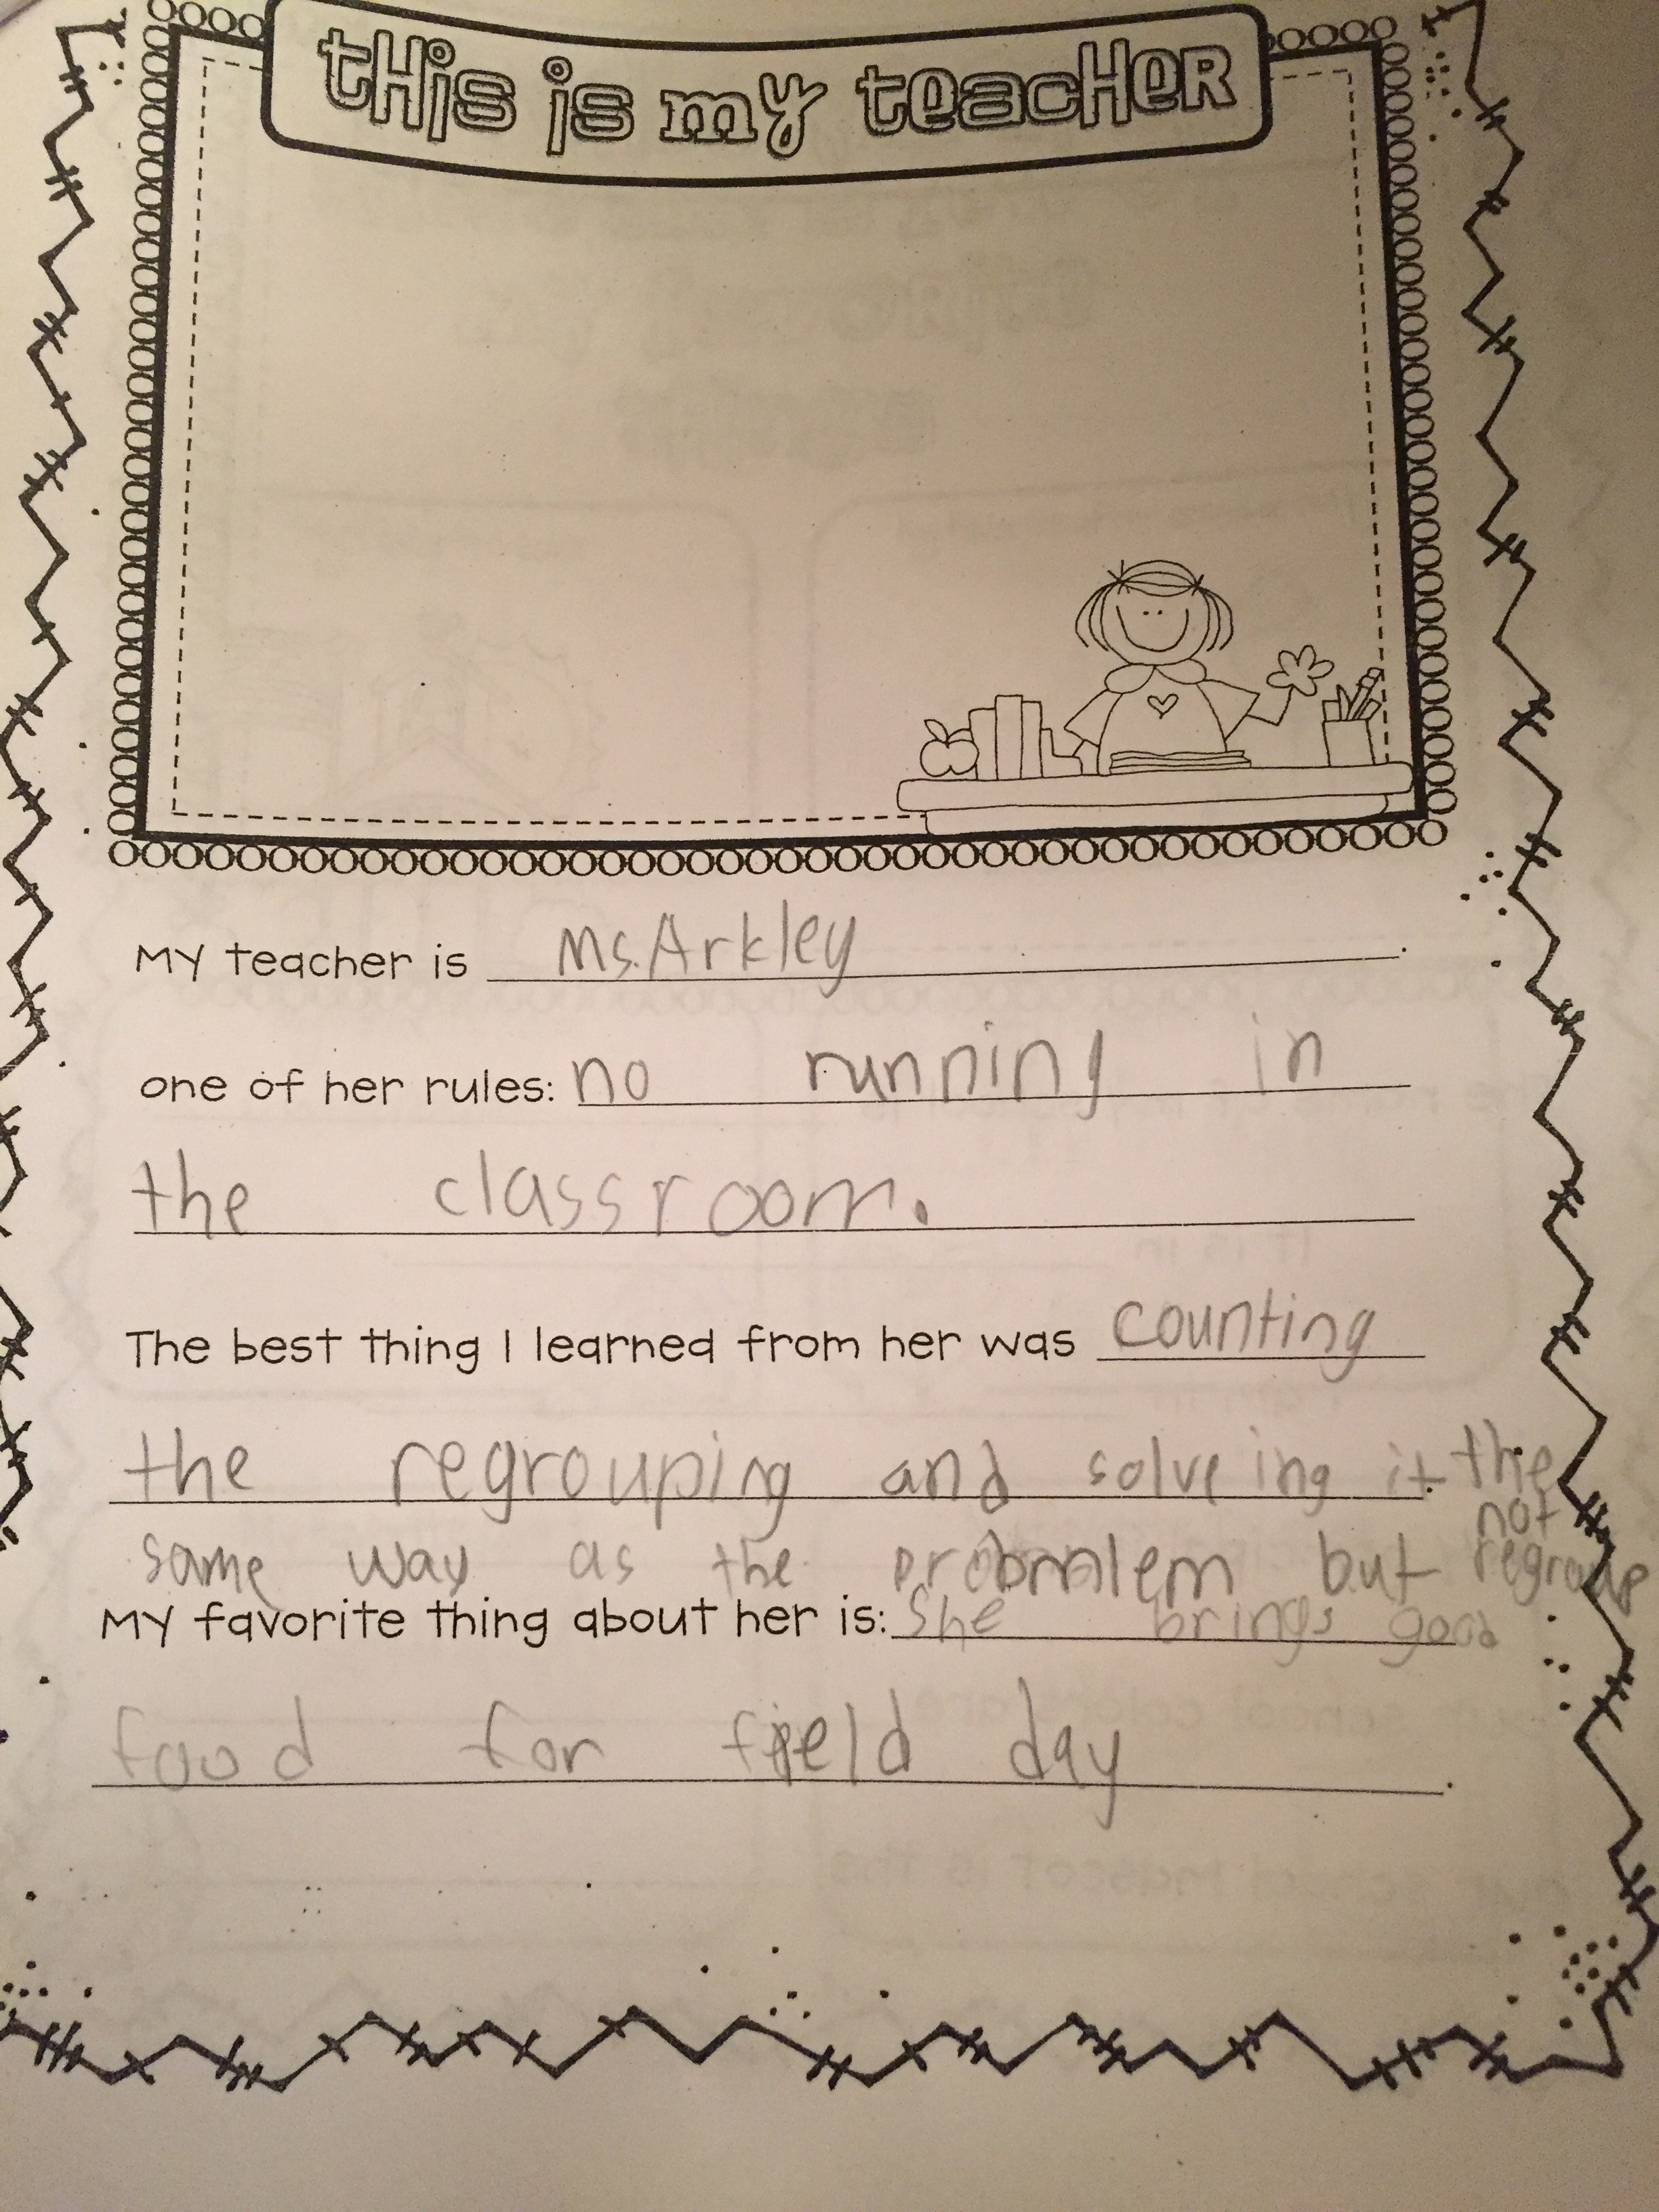 tHis is my teacHeR
My teacher is Ms. Arkley.
one of her rules: no running in
the classroom.
The best thing I learned from her was counting
the regrouping and solveing it. the
same way as the problem but not regroup
My favorite thing about her is: She brings good
food for field day.